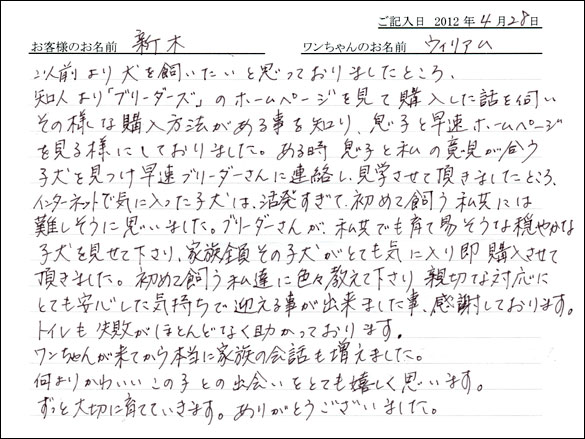 ご記入日 2012年4月28日
お客様のお名前 新木 ワンちゃんのお名前 ウィリアム
以前より犬を飼いたいと思っておりましたところ、
知人より「ブリーダーズ」のホームページを見て購入した話を伺い
その様な購入方法がある事を知り、息子と早速ホームページ
を見る様にしておりました。ある時息子と私の意見が合う
子犬を見つけ早速ブリーダーさんに連絡し見学させて頂きましたところ、
インターネットで気に入った子犬は、活発すぎて、初めて飼う私共には
難しそうに思いました。ブリーダーさんが、私共でも育て易そうな穏やかな
子犬を見せて下さり、家族全員その子犬がとても気に入り即購入させて
頂きました。初めて飼う私達に色々教えて下さり、親切な対応に
とても安心した気持ちで迎える事が出来ました事、感謝しております。
トイレも失敗がほとんどなく助かっております。
ワンちゃんが来てから本当に家族の会話も増えました。
何よりかわいいこの子との出会いをとても嬉しく思います。
ずっと大切に育てていきます。ありがとうございました。